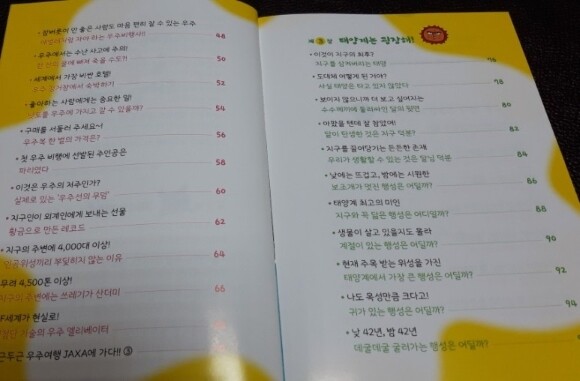 • 잠버릇이 안 좋은 사람도 마음 편히 잘 수 있는 우주
48
• 우주에서는 수난 사고에 주의!
50
• 세계에서 가장 비싼 호텔!
우주 정거장에서 숙박하기
52
• 좋아하는 사람에게는 중요한 일!
54
• 구매를 서둘러 주세요~!
우주복 한 벌의 가격은?
56
• 첫 우주 비행에 선발된 주인공은
파리였다
58
• 이것은 우주의 저주인가?
실제로 있는 '우주선의 무덤'
60
• 지구인이 외계인에게 보내는 선물
황금으로 만든 레코드
62
• 지구의 주변에 4,000대 이상!
인공위성끼리 부딪히지 않는 이유
64
무려 4,500톤 이상!
지구의 주변에는 쓰레기가 산더미
66
세계가 현실로!
기술의 우주 엘리베이터
근두근 우주여행 JAXA에 가다!! ③
제 3 장 태양계는 굉장해!
• 이것이 지구의 최후?
지구를 삼켜버리는 태양
76
• 도대체 어떻게 된 거야?
사실 태양은 타고 있지 않았다
78
• 보이지 않으니까 더 보고 싶어지는
수수께끼에 둘러싸인 달의 뒷면
80
• 아팠을 텐데 잘 참았어!
달이 탄생한 것은 지구 덕분?
82
• 지구를 길어당기는 든든한 존재
우리가 생활할 수 있는 것은 달님 덕분
84
• 낮에는 뜨겁고, 밤에는 시원한
보조개가 멋진 행성은 어딜까?
86
• 태양계 최고의 미인
지구와 꼭 닮은 행성은 어디일까?
88
• 생물이 살고 있을지도 몰라
계절이 있는 행성은 어딜까?
90
• 현재 주목 받는 위성을 가진
태양계에서 가장 큰 행성은 어딜까?
92
• 나도 목성만큼 크다고!
귀가 있는 행성은 어딜까?
94
• 낮 42년, 밤 42년
데굴데굴 굴러가는 행성은 어딜까?